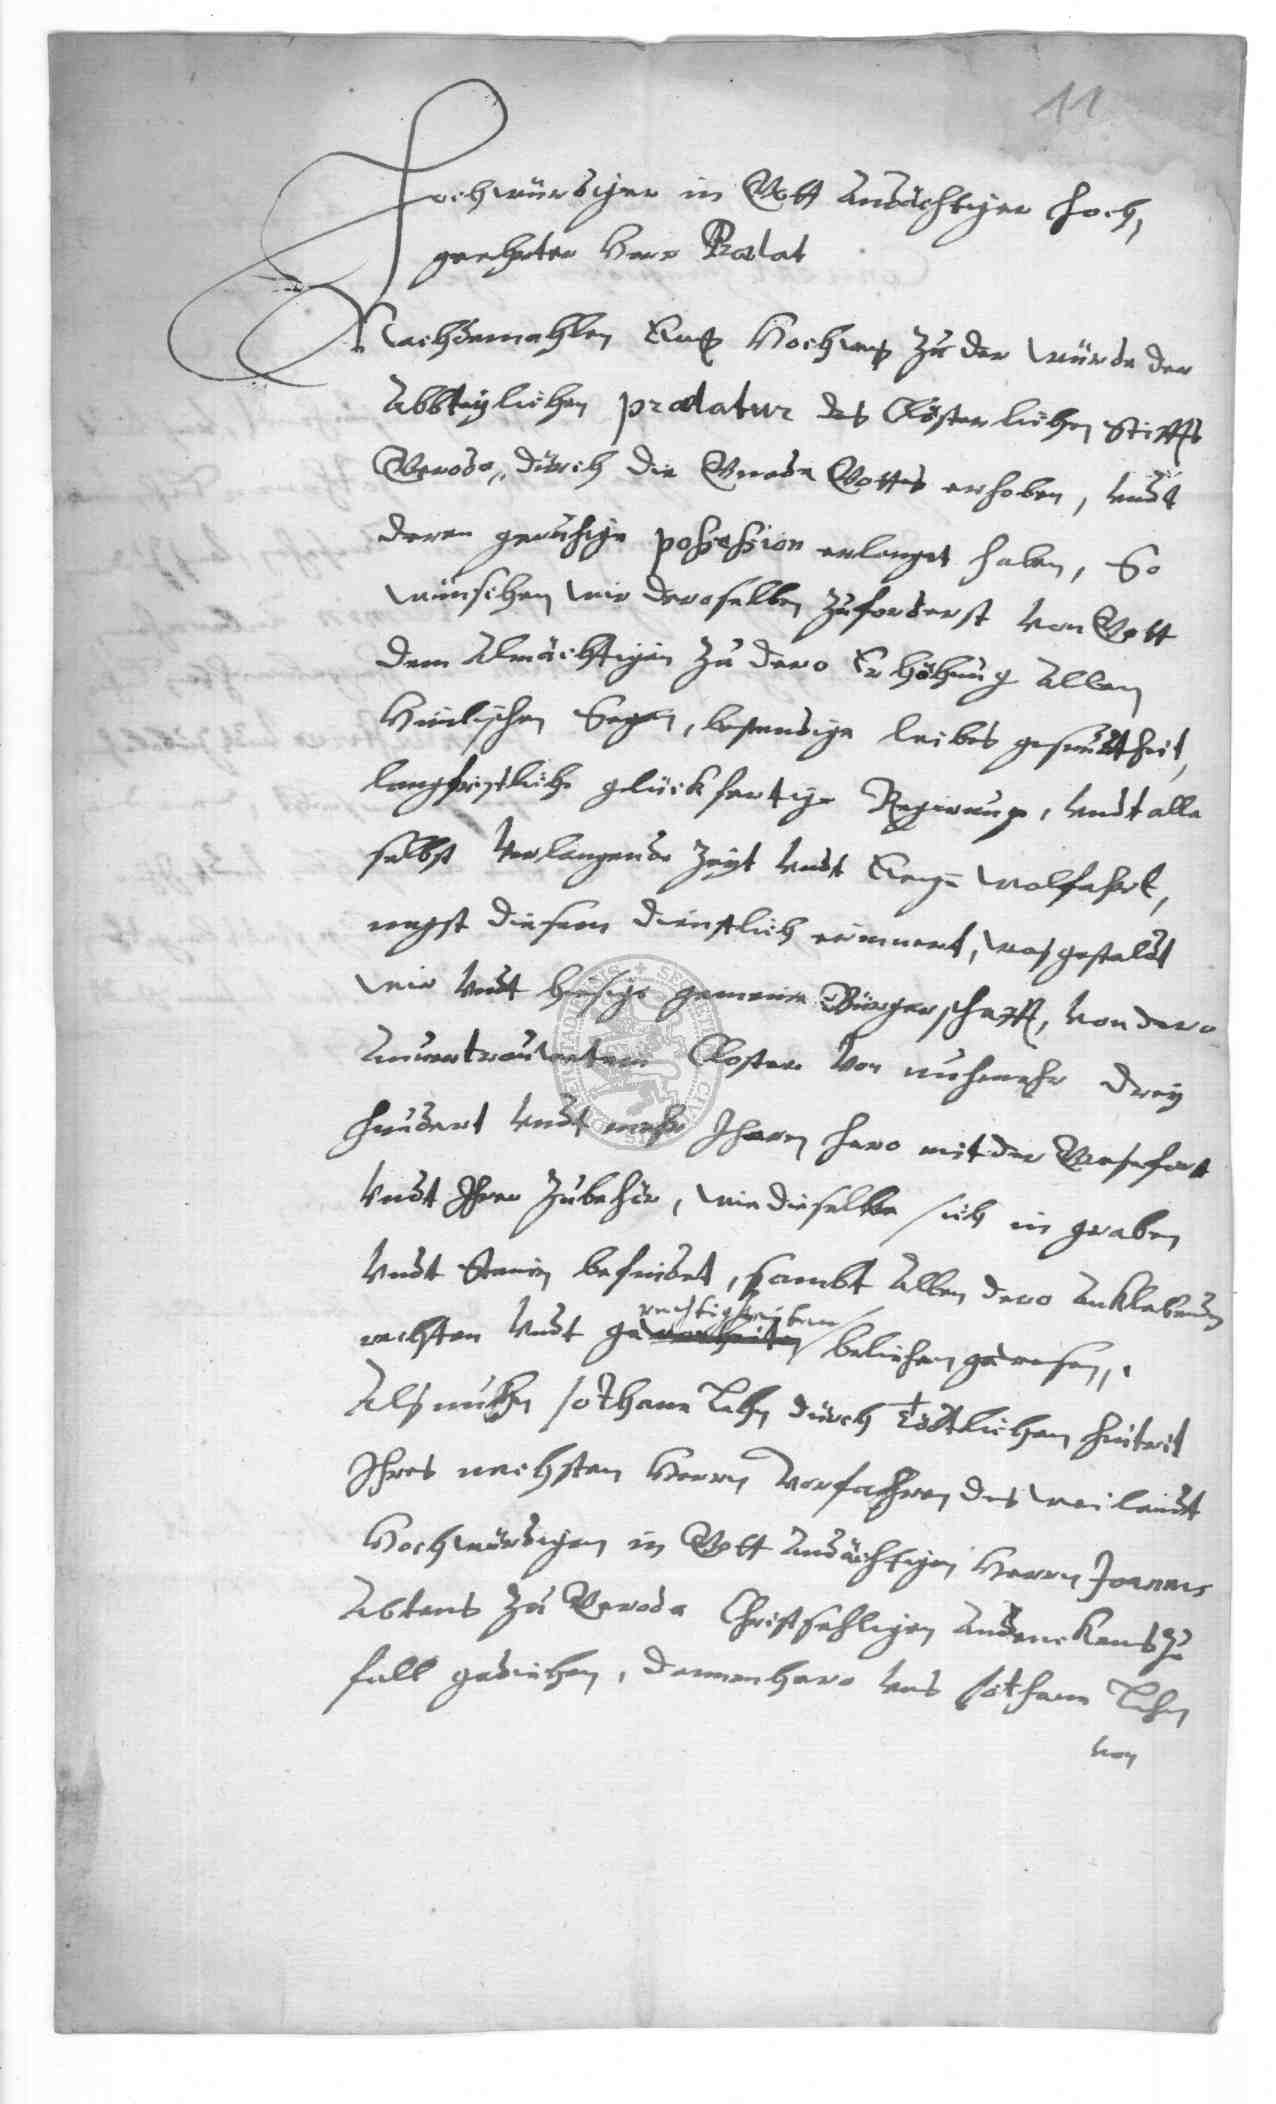 11
Hochwürdiger in Gott Andächtiger Hoch,
geehrter Herr Prælat
Nachdemahlen Ew: Hochw: zu der würde der
Abbteylichen prælatur des Clösterlichen Stiffts
Gerode, durch die Gnade Gottes erhoben, undt
deren geruhige possession erlanget haben, So
wünschen wir deroselben zuforderst von Gott
dem Almächtigen zu dero Erhöhung Allen
Himlischen Segen, bestendige leibes gesundtheit,
langfristliche glückfertige Regirung, undt alle
selbst verlangende Zeyt undt Ewige wolfahrt,
negst diesem dienstlich erinnert, was gestaldt
wir undt hiesige gemeine Bürgerschafft, von dero
Anvertrauwetem Closter vor nuhmehr drey
hundert undt mehr Jharen hero mit der
undt Ihrer Zubehör, wie dieselbe sich in graben
undt Stenin befindet, sambt Allen dero Anklebenden
rechtigkeiten
rechten undt ge beliehen gewesen,
Als nuhn sothane Lehn durch tödtlichen hintrit
Ihres nechsten Herrn Vorfahren des weilandt
Hochwürdigen in Gott Andächtigen Herrn Joannis
Abtens zu Geroda Christsehligen Andenckens zu
fall gediehen, dannenhero uns sothane Lehn
von